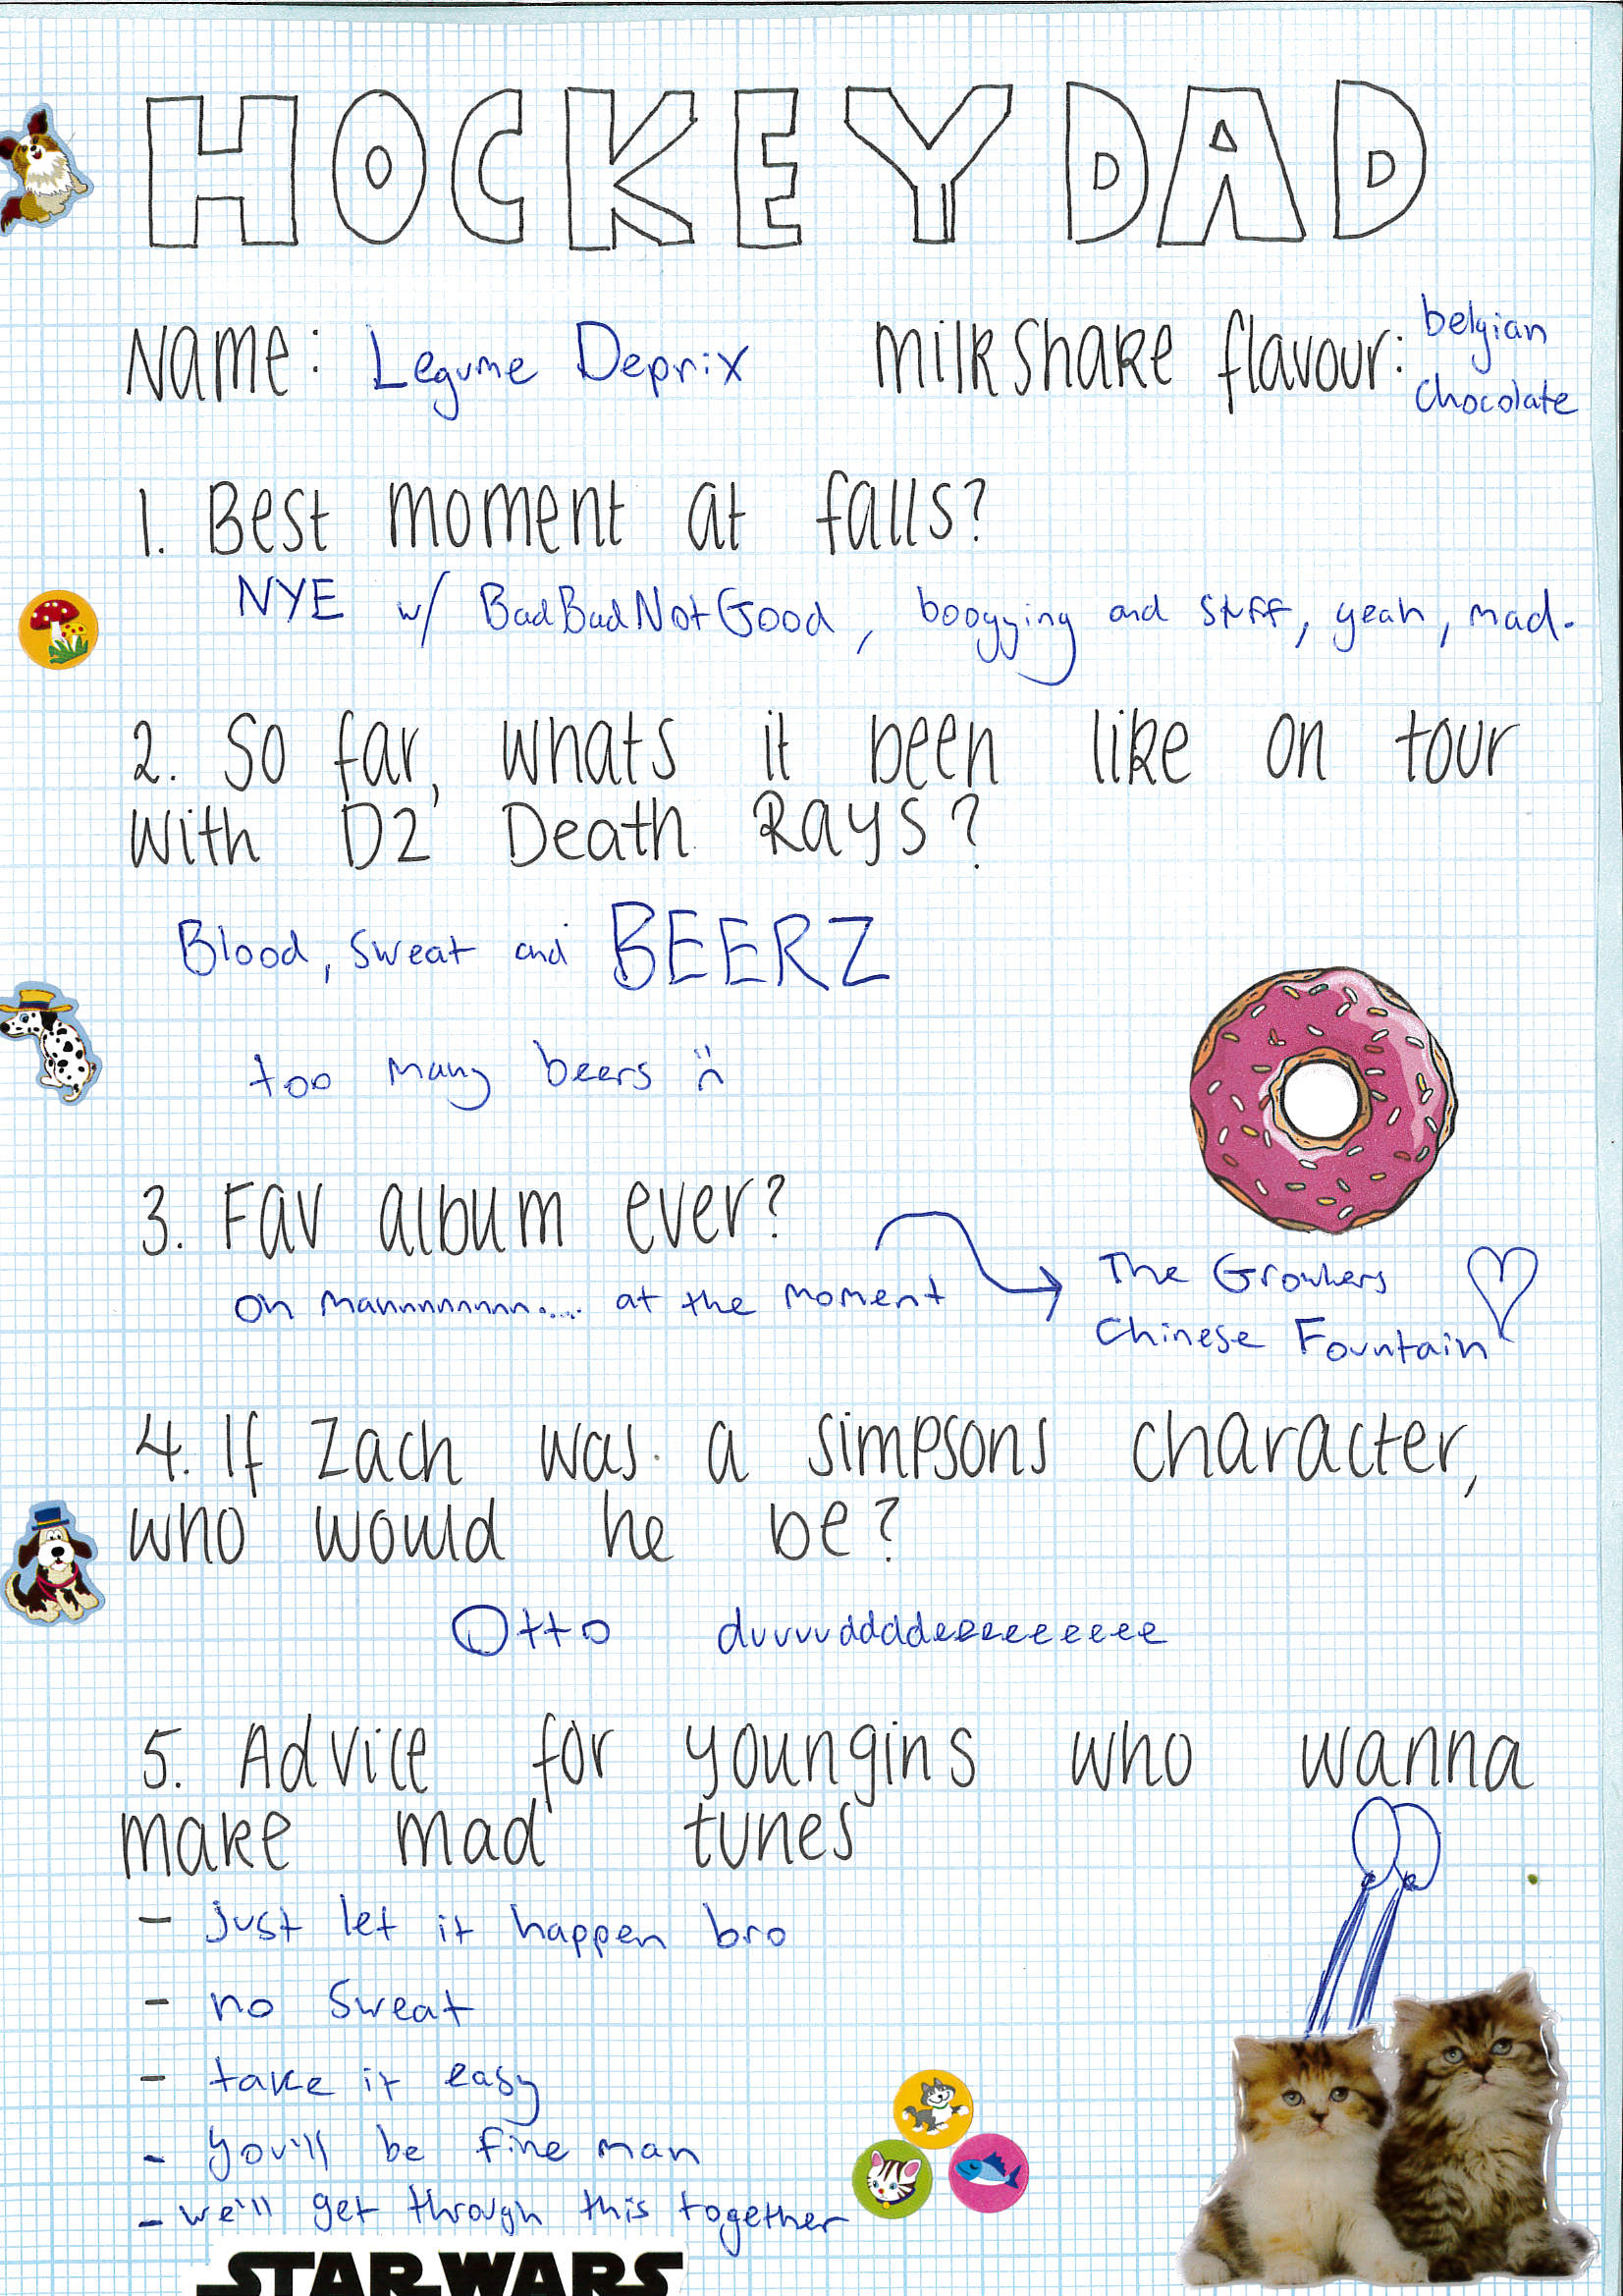 HOCKEY DAD
Name: Legume Deprix milkshake flavour: belgian chocolate
1. Best moment at falls?
NYE w/ BadBadNotGood, boogying and stuff, yeah, mad.
2. So far, whats it been like on tour
with D2 Death Rays?
Blood, sweat and BEERZ
too many beers
3. Fav album ever?
oh mannnnnnnn.... at the moment
The Growlers
Chinese Fountain
4. If Zach was a simpsons character,
who would he be?
Otto duuuuddddeeeeeeeeee
5. Advice for youngins who wanna
make mad tunes
- just let it happen bro
- no sweat
- take it easy
- you'll be fine man
- we'll get through this together
STAR WARS